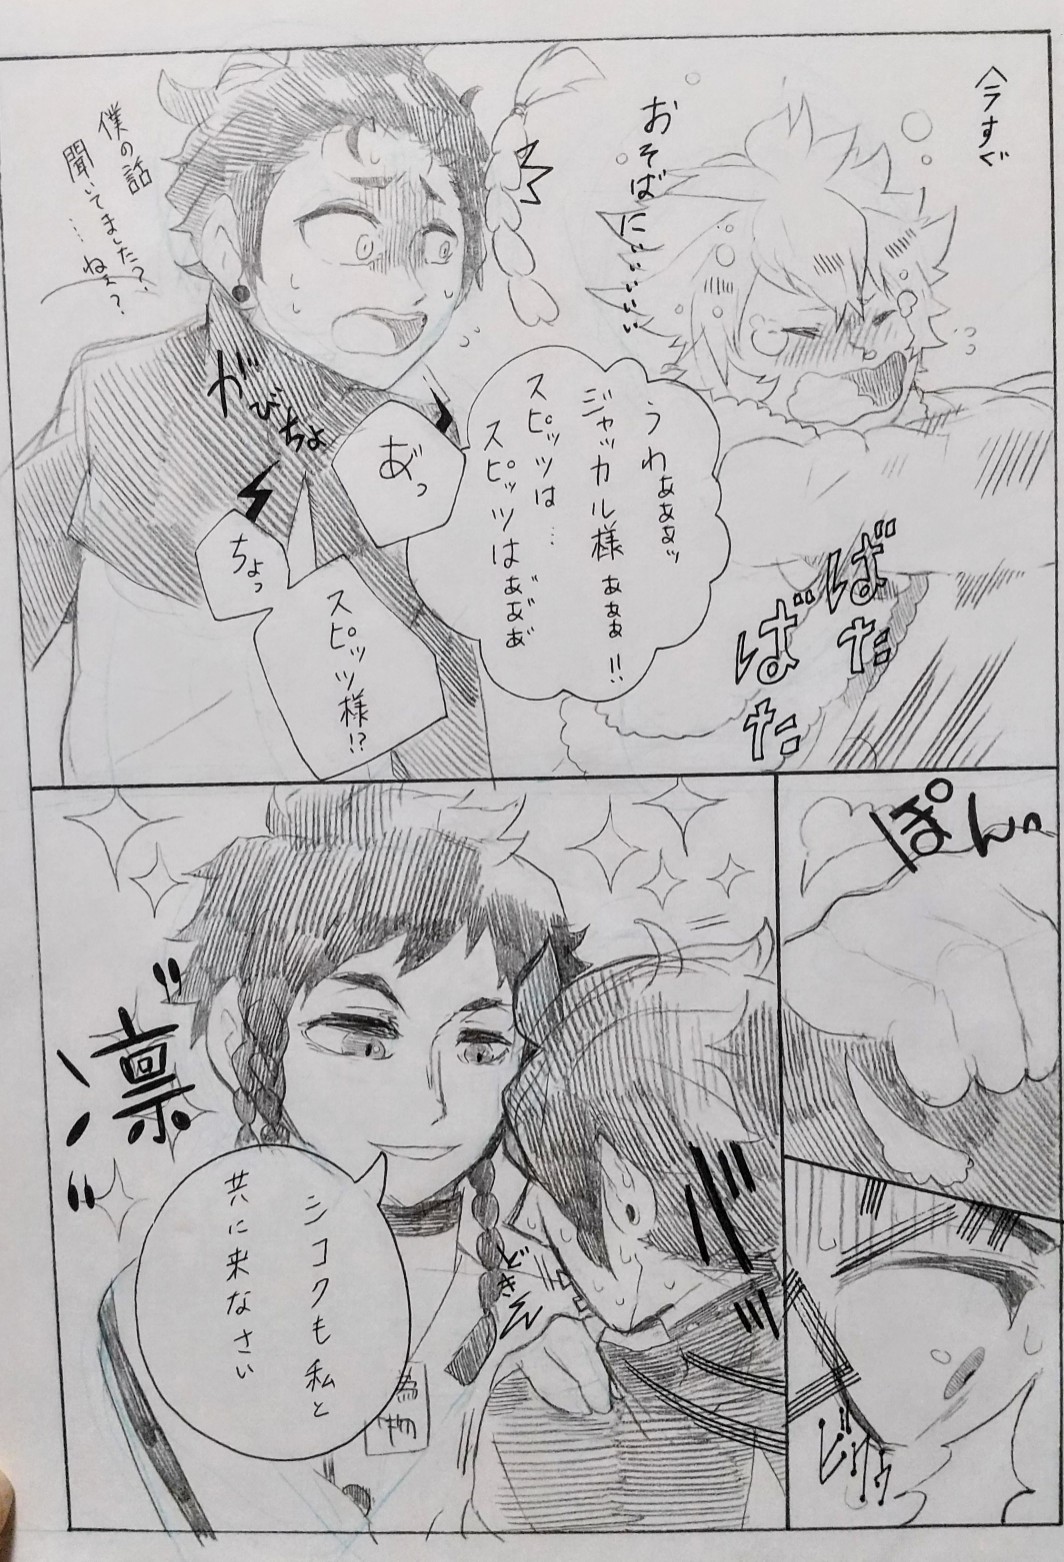 今すぐ
おそばにぃぃぃぃぃ
うわぁぁぁッ
ジャッカル様ぁぁぁ!!
スピッツは…
スピッツはぁ゙ぁ゙ぁ゙
ばた
ばた
あ゙っ
がびちょ
スピッツ様!?
ちょっ
僕の話
聞いてました?
…ねぇ?
ぽんっ
ビクゥ
どきん
シコクも私と
共に来なさい
偽物
"凛"